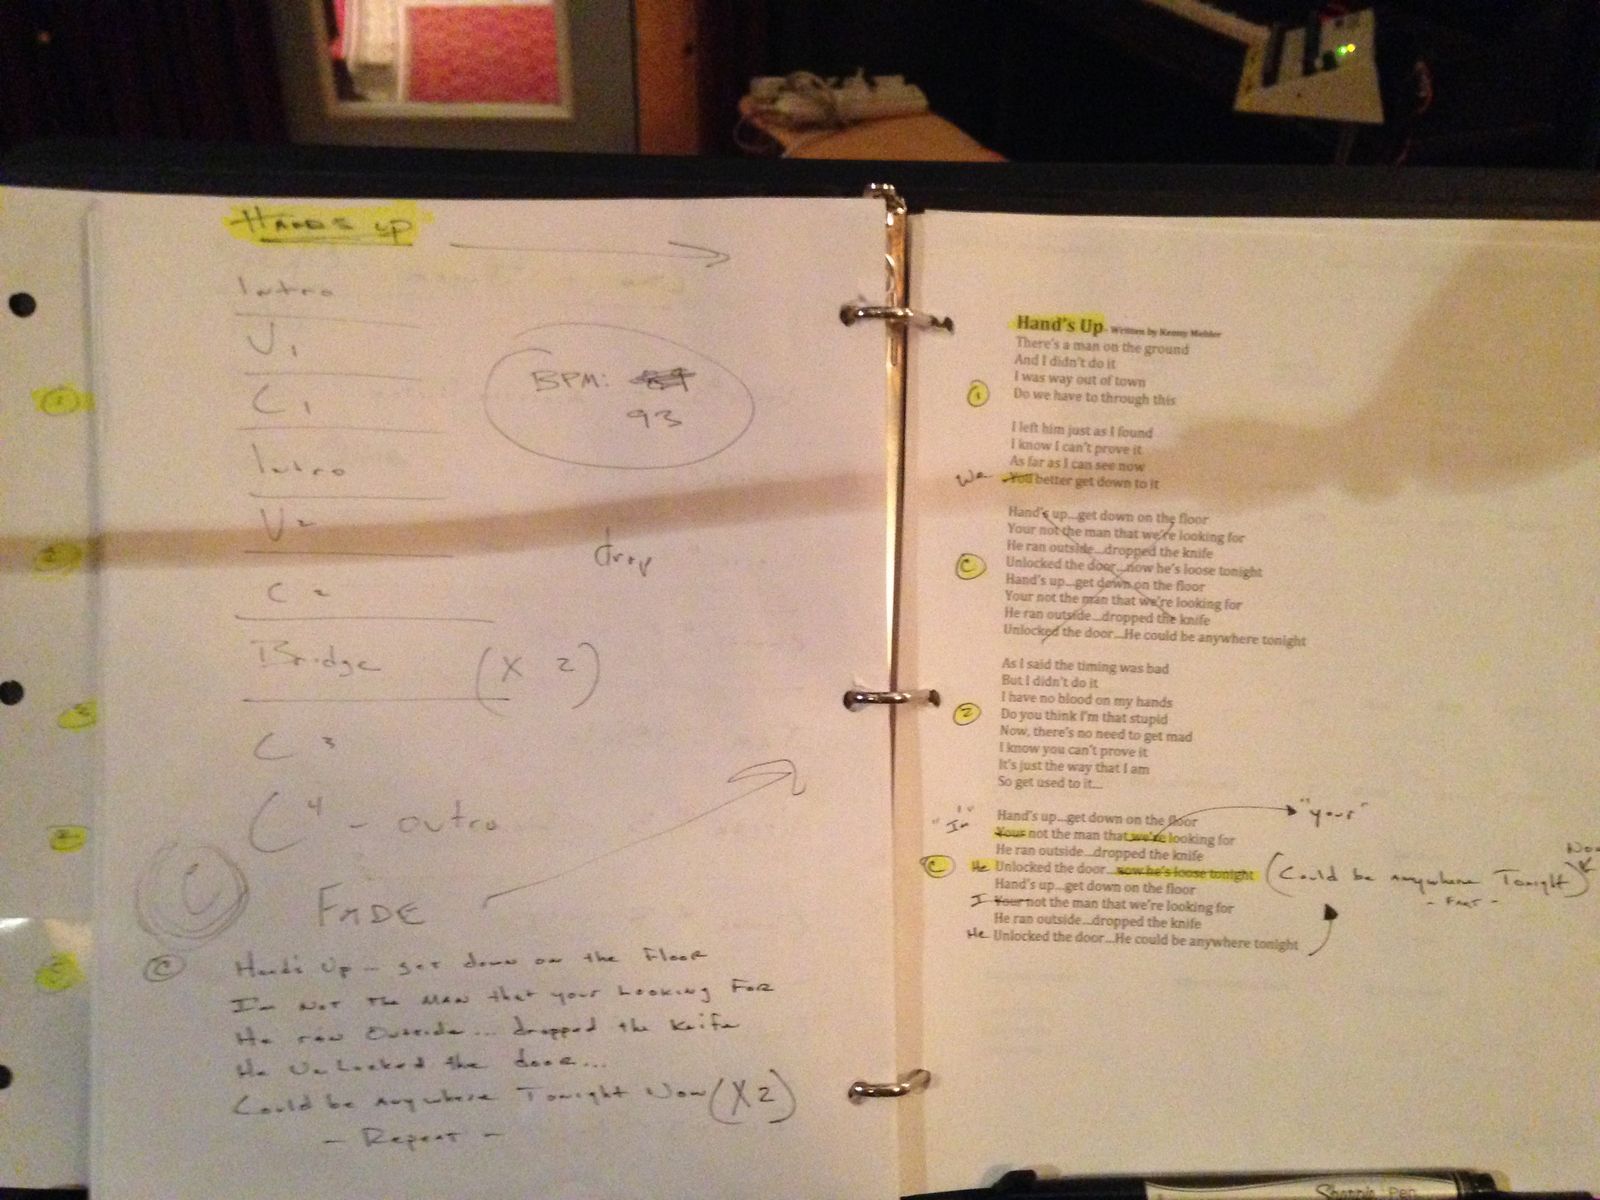 HANDS UP
Intro
V1
C1
BPM:
93
Intro
V2
drop
C2
Bridge (X 2)
C3
C4 - outro
C
FADE
C Hands Up - get down on the Floor
I'm Not The Man that your Looking For
He ran Outside... dropped the knife
He Unlocked the door...
Could be Anywhere Tonight Now (X2)
- Repeat -
1
2
C
Hand's Up - Written by Kenny Mehler
There's a man on the ground
And I didn't do it
I was way out of town
1 Do we have to through this
I left him just as I found
I know I can't prove it
As far as I can see now
We You better get down to it
Hand's up...get down on the floor
Your not the man that we're looking for
He ran outside...dropped the knife
C Unlocked the door...now he's loose tonight
Hand's up...get down on the floor
Your not the man that we're looking for
He ran outside...dropped the knife
Unlocked the door...He could be anywhere tonight
As I said the timing was bad
But I didn't do it
I have no blood on my hands
2 Do you think I'm that stupid
Now, there's no need to get mad
I know you can't prove it
It's just the way that I am
So get used to it...
Hand's up...get down on the floor "your"
"I'm" Your not the man that we're looking for
He ran outside...dropped the knife Now
C He Unlocked the door...now he's loose tonight (Could be Anywhere Tonight)
- FAST -
Hand's up...get down on the floor
I Your not the man that we're looking for
He ran outside...dropped the knife
He Unlocked the door...He could be anywhere tonight
Sharpie PEN